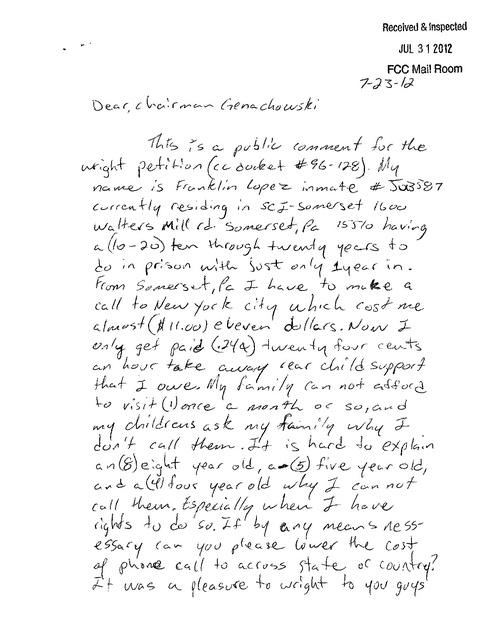 Received & Inspected
JUL 31 2012
FCC Mail Room
7-23-12
Dear, chairman Genachowski
This is a public comment for the
wright petition (cc docket #96-128). My
name is Franklin Lopez inmate # JU3587
currently residing in SCI-Somerset 1600
Walters Mill rd. Somerset, Pa 15510 having
a (10-20) ten through twenty years to
do in prison with just only 1 year in.
From Somerset, Pa I have to make a
call to New York city which cost me
almost ($11.00) eleven dollars. Now I
only get paid (.24¢) twenty four cents
an hour take away rear child support
that I owe. My family can not afford
to visit (1) once a month or so, and
my childrens ask my family why I
don't call them. It is hard to explain
an (8) eight year old, a (5) five year old,
and a (4) four year old why I can not
call them. Especially when I have
rights to do so. If by any means ness-
essary can you please lower the cost
of phone call to across state or country?
It was a pleasure to wright to you guys